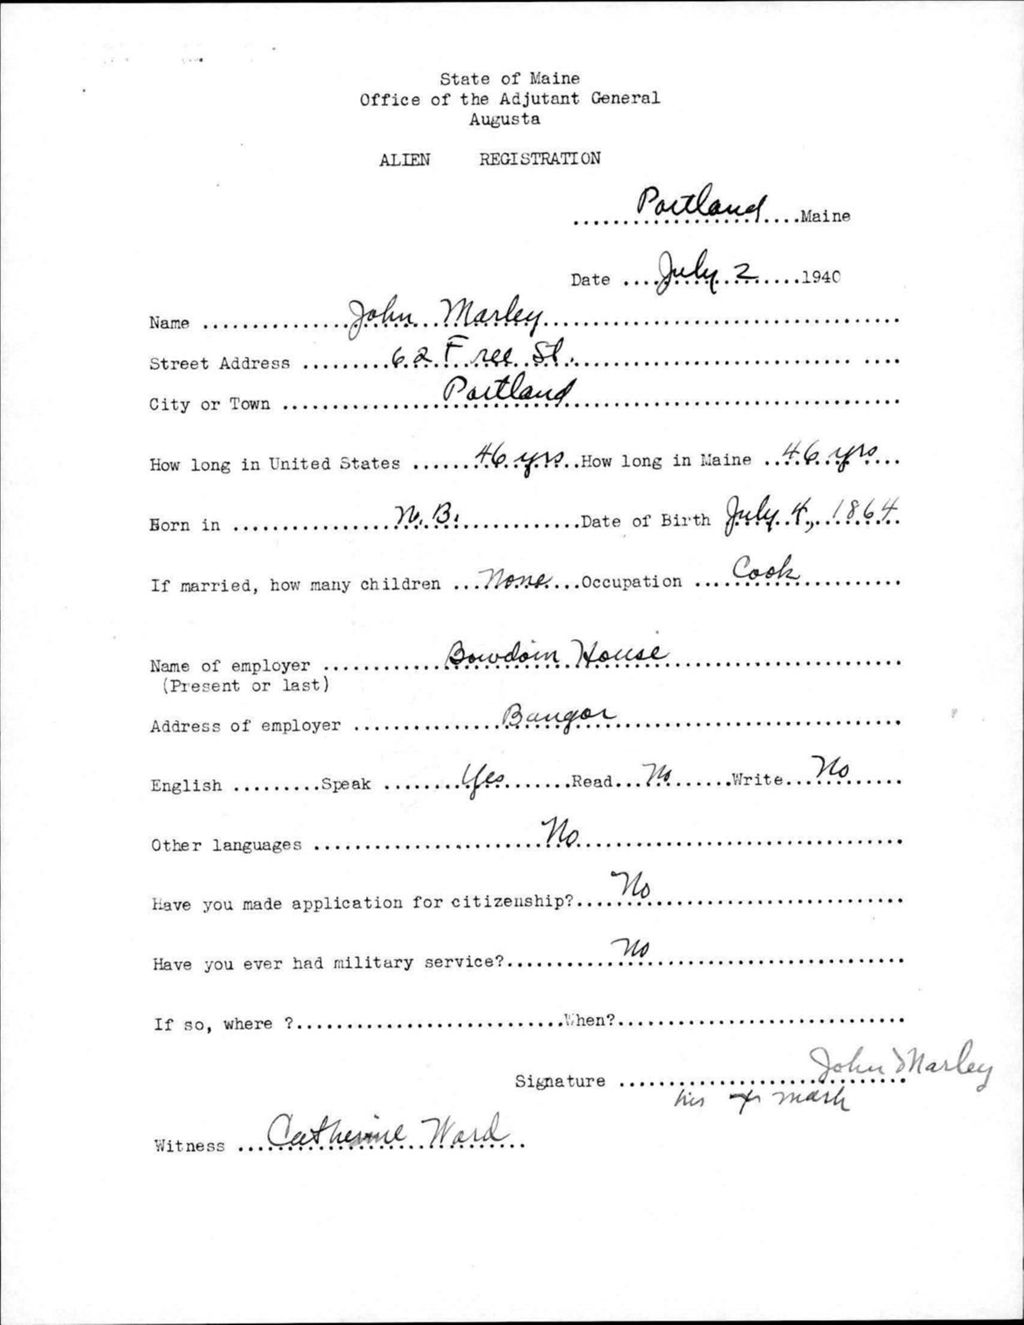 State of Maine
Office of the Adjutant General
Augusta
ALIEN REGISTRATION
Portland Maine
Date July 2 1940
Name John Marley
Street Address 62 Free St.
City or Town Portland
How long in United States 46 yrs How long in Maine 46 yrs
Born in N.B. Date of Birth July 4, 1864
If married, how many children None Occupation Cook
Name of employer Bowdoin House
(Present or last)
Address of employer Bangor
English Speak Yes Read No Write No
Other languages No
Have you made application for citizenship? No
Have you ever had military service? No
If so, where ? When?
Signature John Marley
his x mark
Witness Catherine Ward